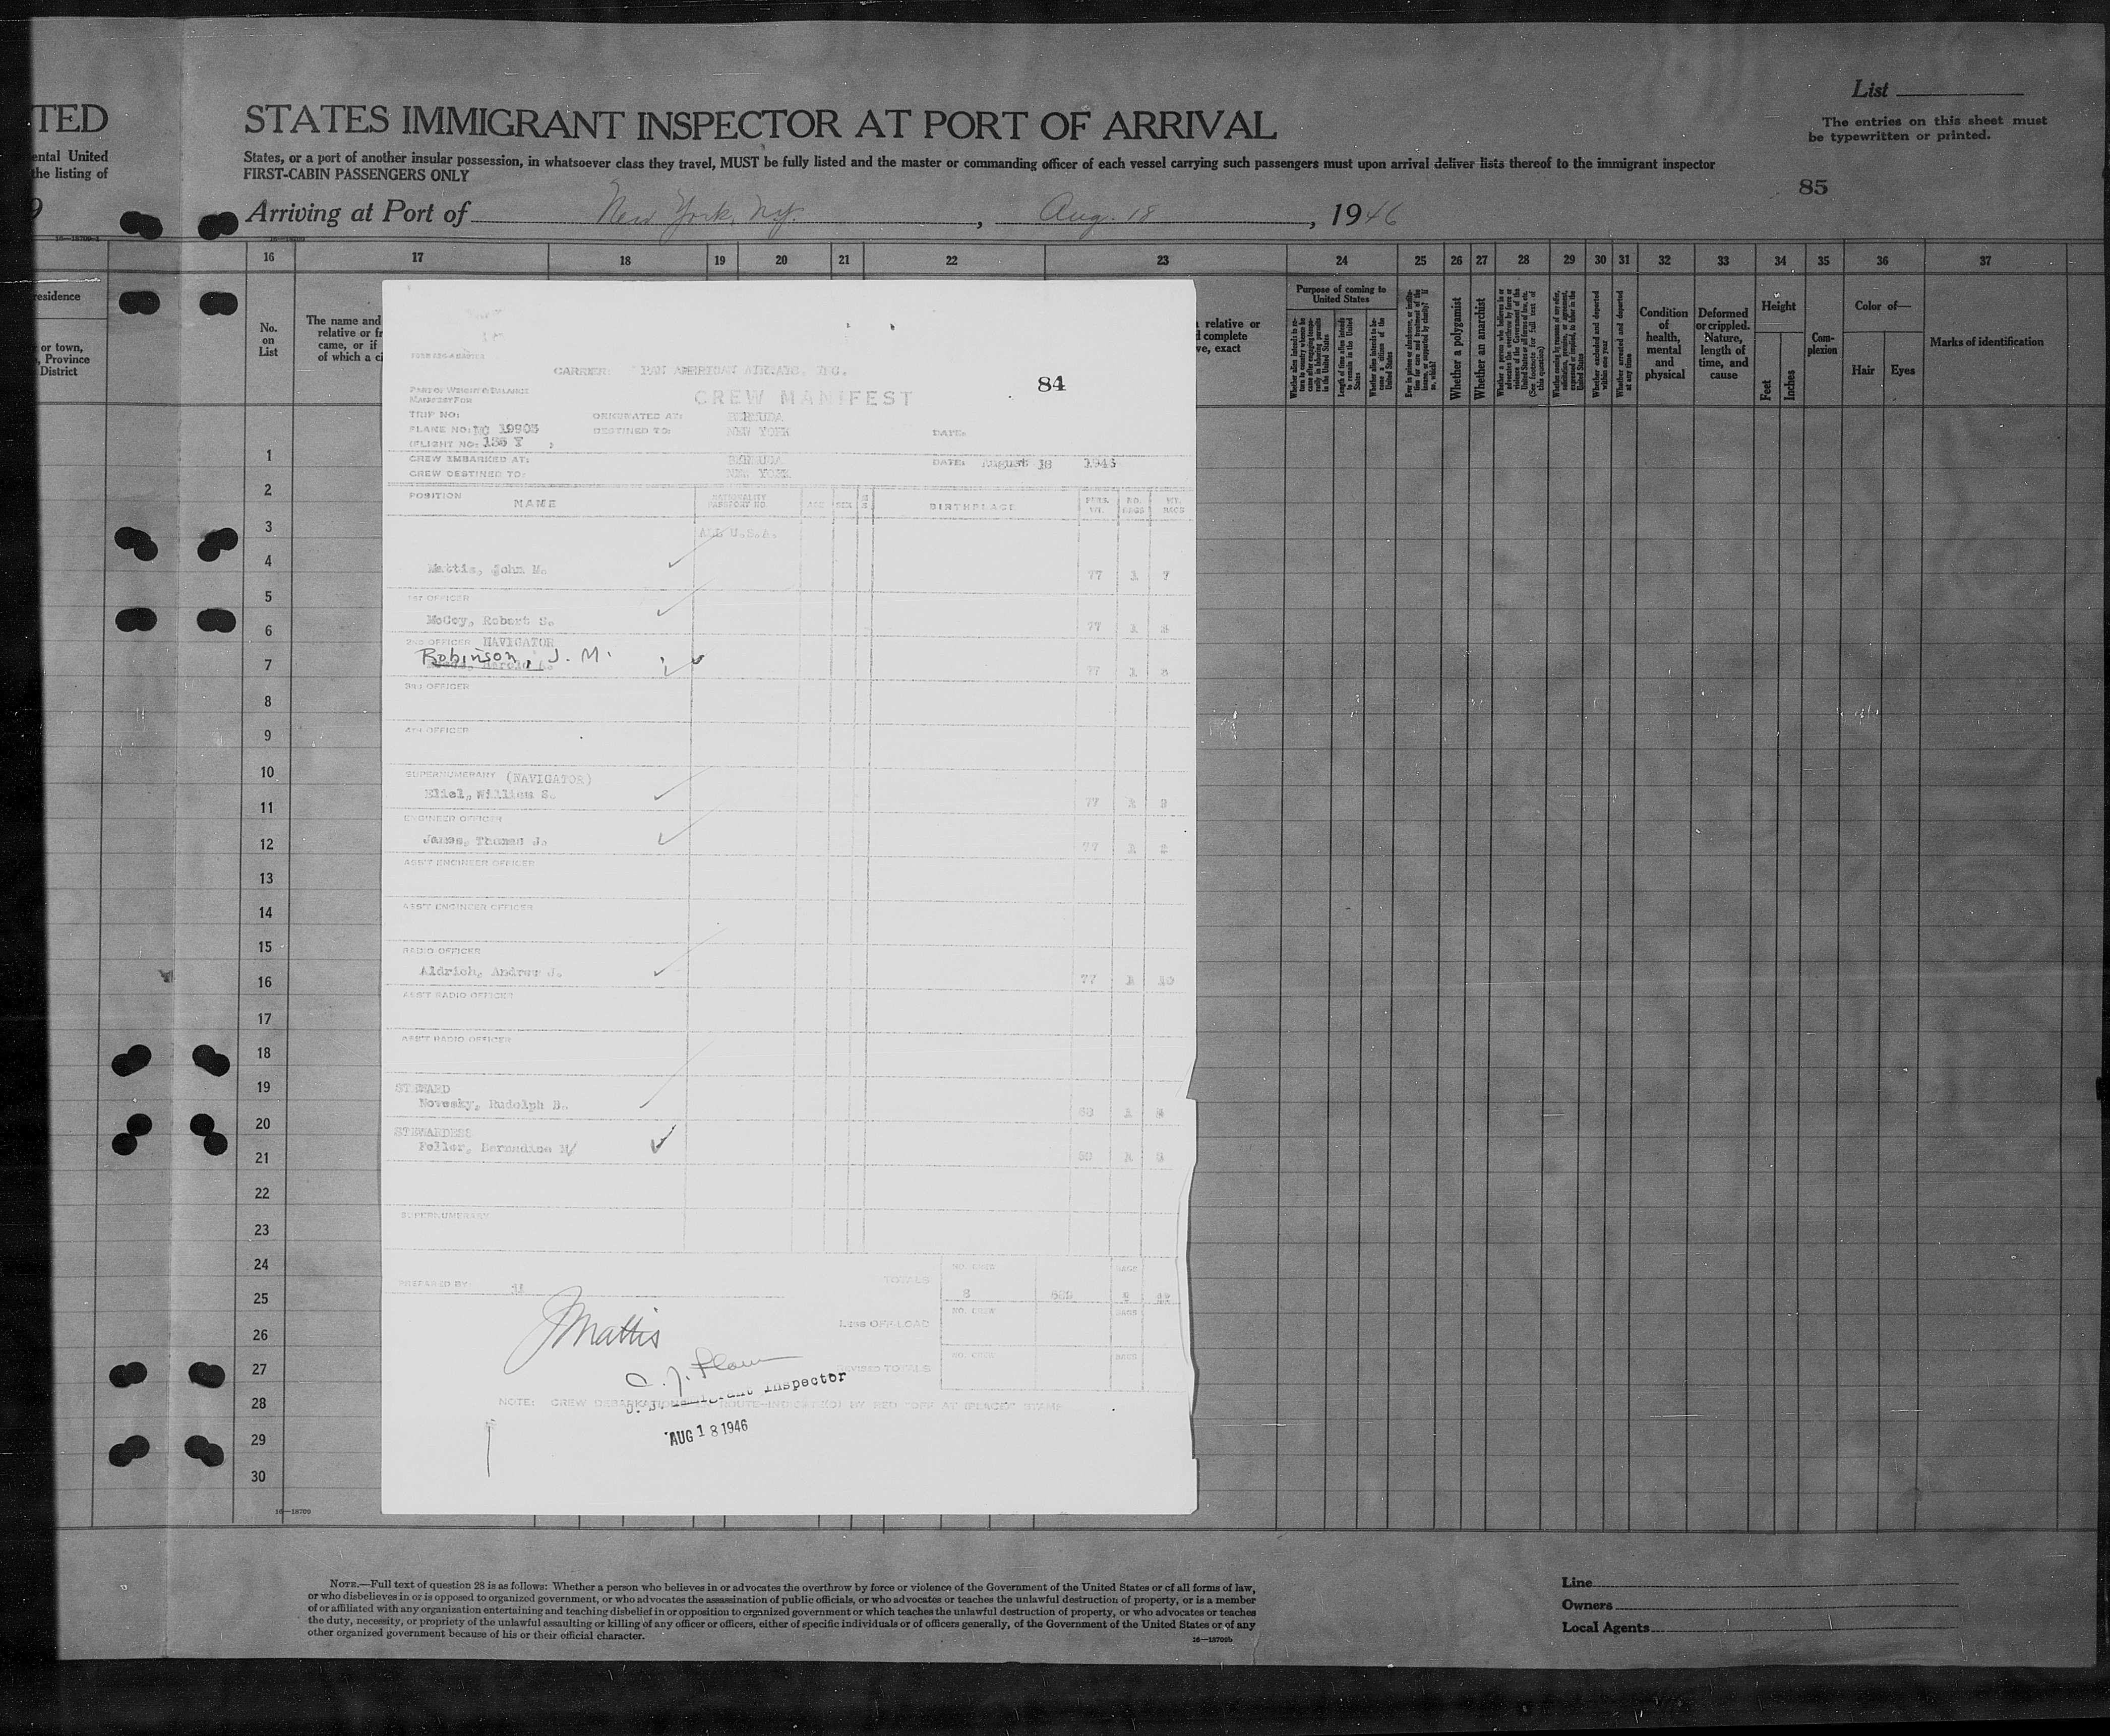 TED
ental United
the listing of
9
16—18709-1
residence
or town,
, Province
District
List
The entries on this sheet must
be typewritten or printed.
STATES IMMIGRANT INSPECTOR AT PORT OF ARRIVAL
States, or a port of another insular possession, in whatsoever class they travel, MUST be fully listed and the master or commanding officer of each vessel carrying such passengers must upon arrival deliver lists thereof to the immigrant inspector
FIRST-CABIN PASSENGERS ONLY
85
Arriving at Port of New York, N.Y. , Aug. 18 , 1946
16 17 18 19 20 21 22 23 24 25 26 27 28 29 30 31 32 33 34 35 36 37
No.
on
List
The name and
relative or fr
came, or if
of which a ci
relative or
d complete
ve, exact
Purpose of coming to
United States
Whether a polygamist
Whether an anarchist
Whether excluded and deported within one year
Whether arrested and deported at any time
Condition
of
health,
mental
and
physical
Deformed
or crippled.
Nature,
length of
time, and
cause
Height
Feet
Inches
Com-
plexion
Color of—
Hair
Eyes
Marks of identification
1
2
3
4
5
6
7
8
9
10
11
12
13
14
15
16
17
18
19
20
21
22
23
24
25
26
27
28
29
30
16—18709
CARRIER: PAN AMERICAN AIRWAYS, INC.
84
PART OF WEIGHT & BALANCE
MANIFEST FOR
CREW MANIFEST
TRIP NO: ORIGINATED AT: BERMUDA
PLANE NO: NC 19903 DESTINED TO: NEW YORK DATE:
(FLIGHT NO: 135 Y
CREW EMBARKED AT: BERMUDA DATE: August 18 1946
CREW DESTINED TO: NEW YORK
POSITION NAME NATIONALITY PASSPORT NO. AGE SEX BIRTHPLACE PERS. WT. NO. BAGS WT. BAGS
ALL U.S.A.
Mattis, John M. 77 1 7
1ST OFFICER
McCoy, Robert S. 77 1
2ND OFFICER NAVIGATOR
Robinson, J. M. 77 1
3RD OFFICER
4TH OFFICER
SUPERNUMERARY (NAVIGATOR)
Eliel, William S. 77 1
ENGINEER OFFICER
James, Thomas J. 77 1
ASS'T ENGINEER OFFICER
ASS'T ENGINEER OFFICER
RADIO OFFICER
Aldrich, Andrew J. 77 1 10
ASS'T RADIO OFFICER
ASS'T RADIO OFFICER
STEWARD
Novesky, Rudolph B. 1
STEWARDESS
Feller, Bernadine M/ 1
SUPERNUMERARY
PREPARED BY
TOTALS NO. CREW 8 BAGS
LESS OFF-LOAD NO. CREW BAGS
REVISED TOTALS NO. CREW BAGS
JMattis
Inspector
NOTE: CREW DEBARKATIONS ROUTE—INDICATED BY RED "OFF AT (PLACE)" STAMP
AUG 18 1946
NOTE.—Full text of question 28 is as follows: Whether a person who believes in or advocates the overthrow by force or violence of the Government of the United States or of all forms of law,
or who disbelieves in or is opposed to organized government, or who advocates the assassination of public officials, or who advocates or teaches the unlawful destruction of property, or is a member
of or affiliated with any organization entertaining and teaching disbelief in or opposition to organized government or which teaches the unlawful destruction of property, or who advocates or teaches
the duty, necessity, or propriety of the unlawful assaulting or killing of any officer or officers, either of specific individuals or of officers generally, of the Government of the United States or of any
other organized government because of his or their official character.
16—18709b
Line
Owners
Local Agents